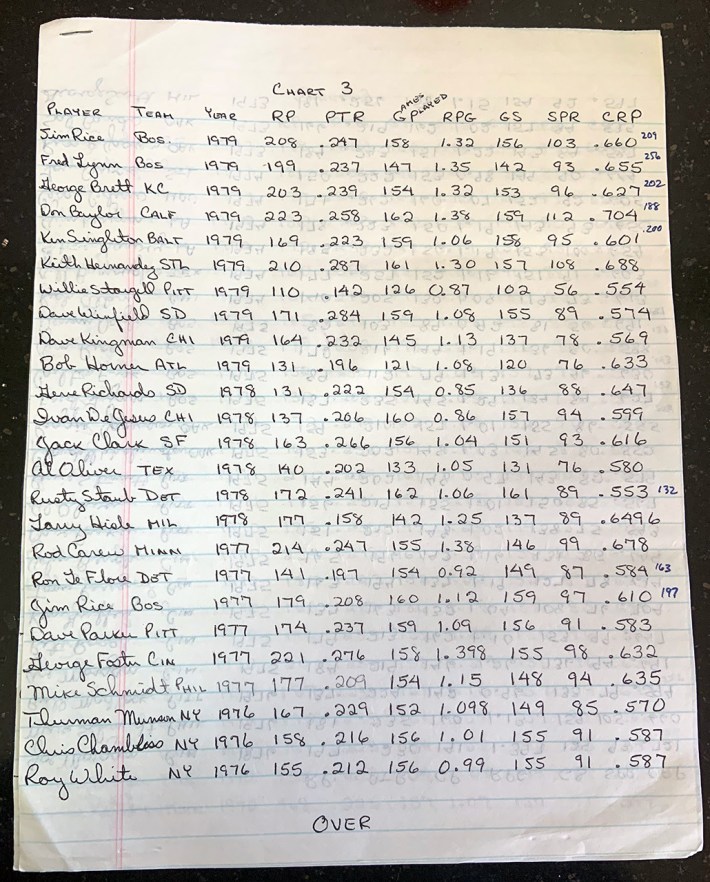 CHART 3
PLAYER TEAM YEAR RP PTR GAMES PLAYED RPG GS SPR CRP
Jim Rice Bos. 1979 208 .247 158 1.32 156 103 .660 209
Fred Lynn Bos 1979 199 .237 147 1.35 142 93 .655 256
George Brett KC 1979 203 .239 154 1.32 153 96 .627 202
Don Baylor CALF 1979 223 .258 162 1.38 159 112 .704 188
Ken Singleton BALT 1979 169 .223 159 1.06 158 95 .601 .200
Keith Hernandez STL 1979 210 .287 161 1.30 157 108 .688
Willie Stargell PITT 1979 110 .142 126 0.87 102 56 .554
Dave Winfield SD 1979 171 .284 159 1.08 155 89 .574
Dave Kingman CHI 1979 164 .232 145 1.13 137 78 .569
Bob Horner ATL 1979 131 .196 121 1.08 120 76 .633
Gene Richards SD 1978 131 .222 154 0.85 136 88 .647
Ivan DeJesus CHI 1978 137 .206 160 0.86 157 94 .599
Jack Clark SF 1978 163 .266 156 1.04 151 93 .616
Al Oliver TEX 1978 140 .202 133 1.05 131 76 .580
Rusty Staub DET 1978 172 .241 162 1.06 161 89 .553 132
Larry Hisle MIL 1978 177 .158 142 1.25 137 89 .6496
Rod Carew MINN 1977 214 .247 155 1.38 146 99 .678
Ron Le Flore DET 1977 141 .197 154 0.92 149 87 .584 163
Jim Rice Bos 1977 179 .208 160 1.12 159 97 .610 197
Dave Parker PITT 1977 174 .237 159 1.09 156 91 .583
George Foster CIN 1977 221 .276 158 1.398 155 98 .632
Mike Schmidt PHIL 1977 177 .209 154 1.15 148 94 .635
Thurman Munson NY 1976 167 .229 152 1.098 149 85 .570
Chris Chambliss NY 1976 158 .216 156 1.01 155 91 .587
Roy White NY 1976 155 .212 156 0.99 155 91 .587
OVER